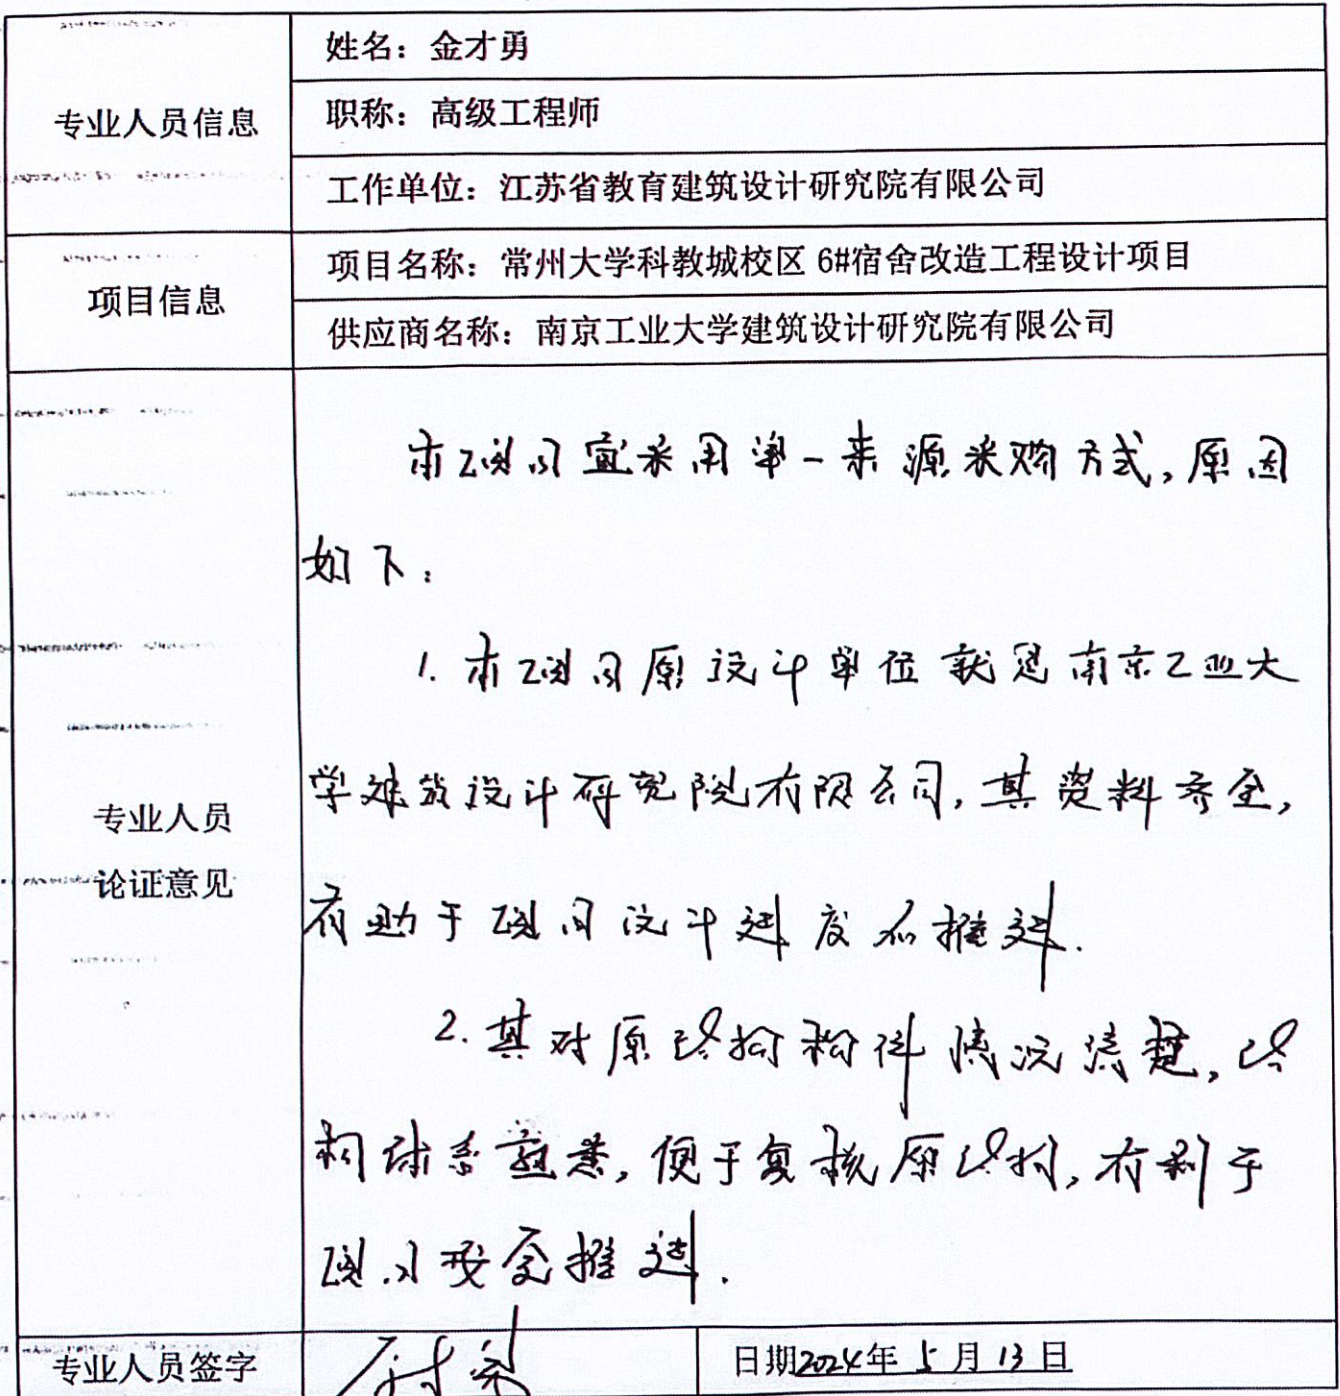 姓名：金才勇
专业人员信息
职称：高级工程师
工作单位：江苏省教育建筑设计研究院有限公司
项目信息
项目名称：常州大学科教城校区 6#宿舍改造工程设计项目
供应商名称：南京工业大学建筑设计研究院有限公司
专业人员
论证意见
本项目宜采用单一来源采购方式,原因
如下：
1. 本项目原设计单位就是南京工业大
学建筑设计研究院有限公司,其资料齐全,
有助于项目设计进度的推进.
2. 其对原结构构件情况清楚,结
构体系熟悉,便于复核原结构,有利于
项目安全推进.
专业人员签字
日期2024年 5 月 13 日